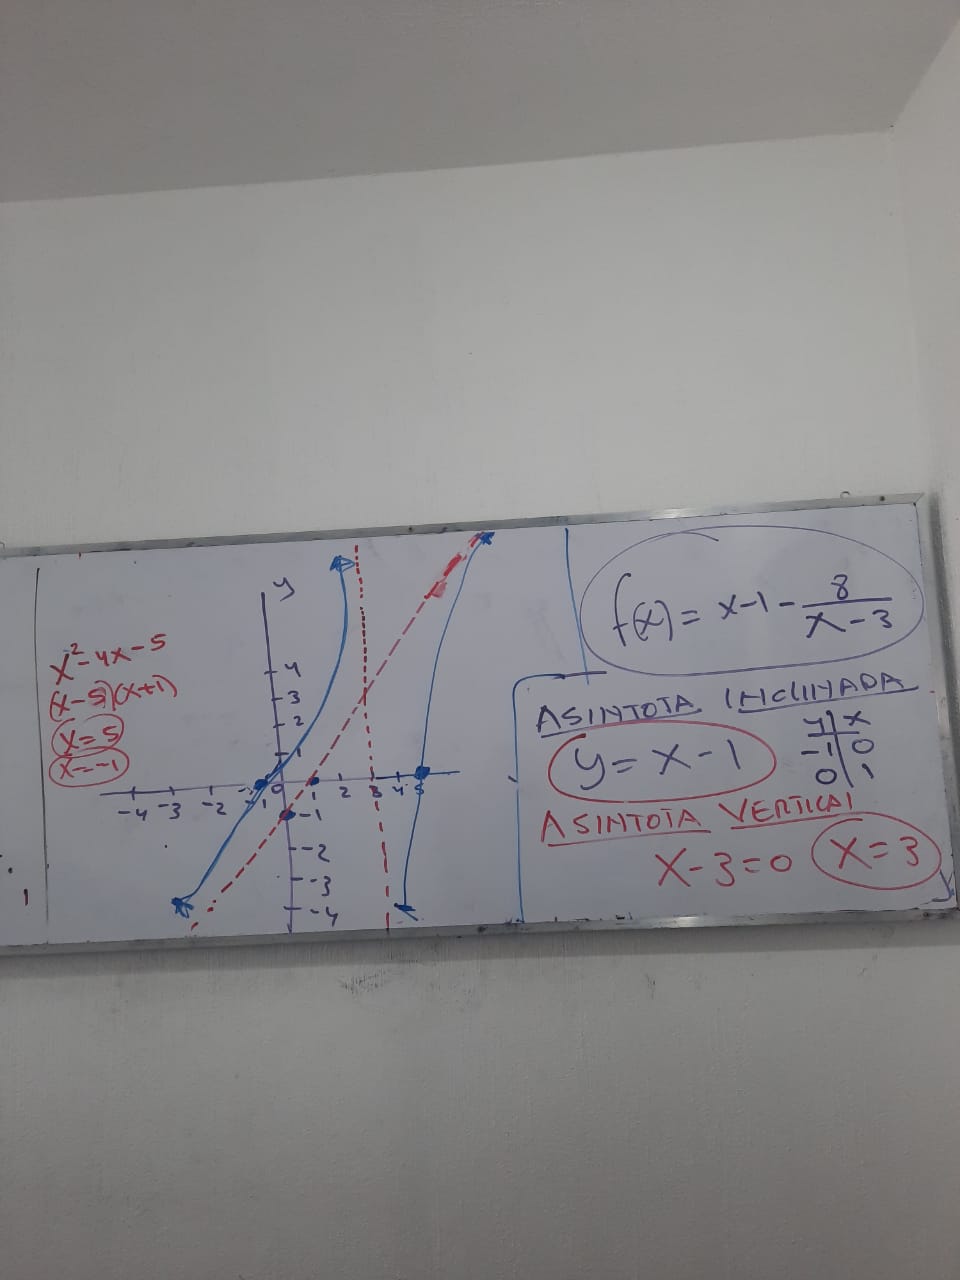 x²-4x-5
(x-5)(x+1)
x=5
x=-1
y
4
3
2
1
-4 -3 -2 -1 0 1 2 3 4 5
-1
-2
-3
-4
f(x) = x-1 - 8/(x-3)
ASINTOTA INCLINADA
y = x-1
y x
-1 0
0 1
ASINTOTA VERTICAL
x-3=0 x=3